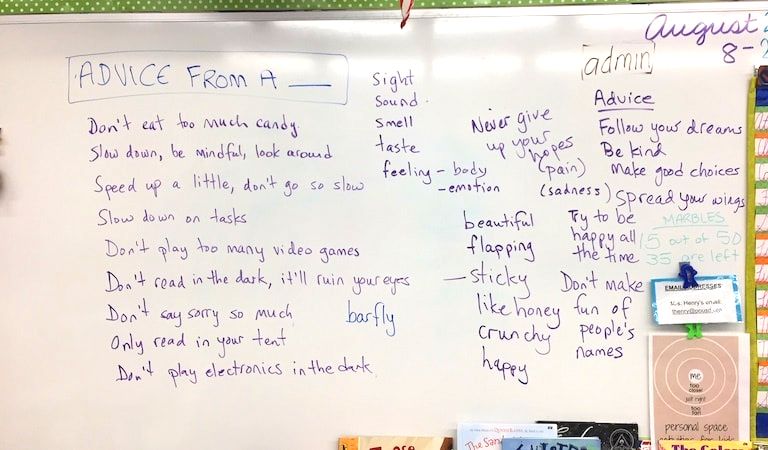 August
8-
ADVICE FROM A ___
admin
Don't eat too much candy.
Slow down, be mindful, look around
Speed up a little, don't go so slow
Slow down on tasks
Don't play too many video games
Don't read in the dark, it'll ruin your eyes
Don't say sorry so much
Only read in your tent
Don't play electronics in the dark.
barfly
Sight
Sound.
Smell
taste
feeling - body
- emotion
Never give
up your
hopes
(pain)
(sadness)
beautiful
flapping
— sticky
like honey
crunchy
happy
Try to be
happy all
the time
Don't make
fun of
people's
names
Advice
Follow your dreams
Be kind
Make good choices
Spread your wings
MARBLES
15 out of 50
35 are left
me
too
close!
just right
too
far!
personal space
The San